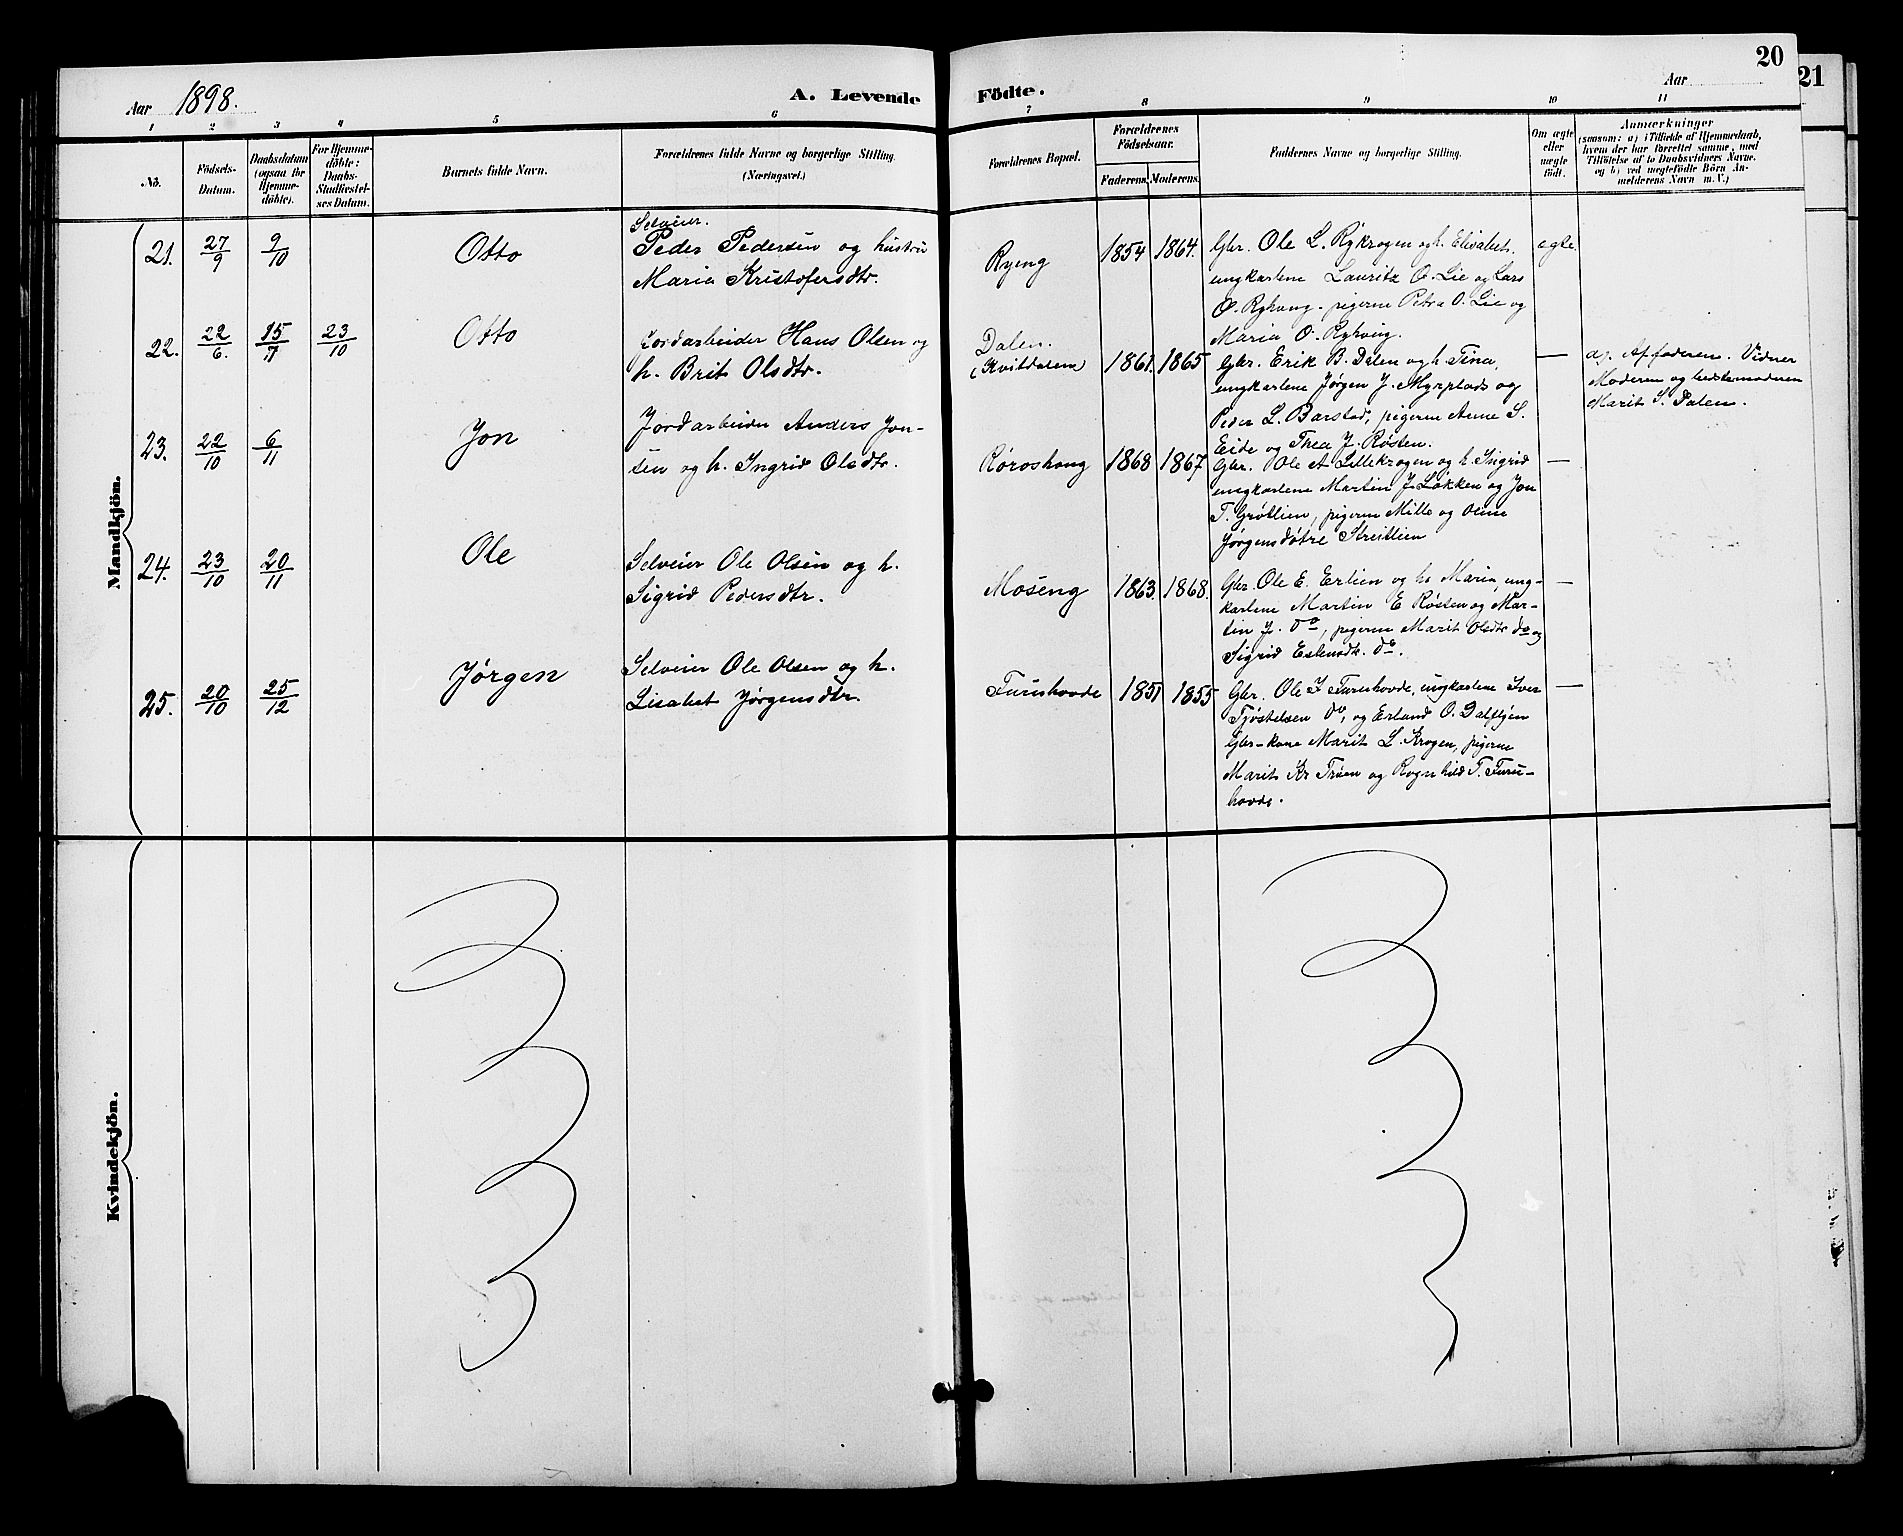 20
21
Aar 1898.
A. Levende Födte.
Aar
1 2 3 4 5 6 7 8 9 10 11
No.
Födsels-Datum.
Daabsdatum (ogsaa for Hjemmedöbte).
For Hjemmedöbte: Daabs-Stadfæstelses Datum.
Barnets fulde Navn.
Forældrenes fulde Navne og borgerlige Stilling. (Næringsvei.)
Forældrenes Bopæl.
Forældrenes Födselsaar.
Faderens. Moderens.
Faddernes Navne og borgerlige Stilling.
Om ægte eller uægte födt.
Anmærkninger
(saasom: a) i Tilfælde af Hjemmedaab, hvem der har forrettet samme, med Tilföielse af to Daabsvidners Navne. og b) ved uægtefödte Börn Anmelderens Navn m. V.)
Mandkjön.
21. 27/9 9/10 Otto
Selveier.
Peder Pedersen og hustru
Maria Kristofersdtr.
Ryeng 1854 1864.
Gbr. Ole L. Rykrogen og h. Elisabet,
ungkarlene Lauritz O. Lie og Lars
O. Ryhaug. pigerne Petra O. Lie og
Maria O. Ryhaug.
ægte
22. 22/6. 15/7 23/10 Otto
Jordarbeider Hans Olsen og
h. Brit Olsdtr.
Dalen.
(Kvitdalen) 1861. 1865
Gbr. Erik B. Dalen og h. Tina,
ungkarlene Jørgen J. Myrplads og
Peder L. Barstad, pigerne Anne S.
Eide og Thea J. Røsten.
—
a). Af faderen. Vidner
Moderen og bedstemoderen
Marit S. Dalen.
23. 22/10 6/11 Jon
Jordarbeider Anders Jon-
sen og h. Ingrid Olsdtr.
Røroshaug 1868 1867
Gbr. Ole A Lillekrogen og h. Ingrid
ungkarlene Martin J. Løkken og Jon
T. Grøtlien, pigerne Mille og Oline
Jørgensdøtre Streitlien
—
24. 23/10 20/11 Ole
Selveier Ole Olsen og h.
Sigrid Pedersdtr.
Moseng 1863. 1868.
Gbr. Ole E. Erlien og h. Maria, ung-
karlene Martin E Røsten og Mar-
tin J. do, pigerne Marit Olsdtr do og
Sigrid Estensdtr. do.
—
25. 20/10 25/12 Jørgen
Selveier Ole Olsen og h.
Lisabet Jørgensdtr.
Furuhovde 1851 1855
Gbr. Ole J Furuhovde, ungkarlene Iver
Tjøstelsen do, og Erland O. Dalflyen
Gbr-kone Marit L. Krogen, pigerne
Marit Kr Trøen og Rognhild T. Furu-
hovde.
—
Kvindekjön.